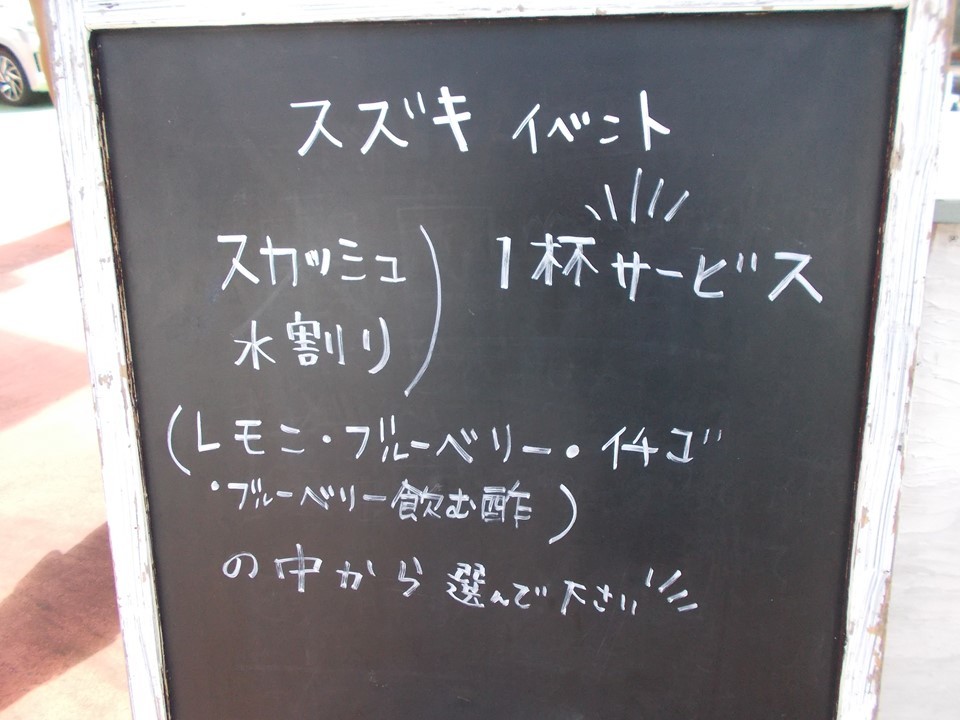 スズキ イベント
スカッシュ
水割り
) 1杯サービス
(レモン・ブルーベリー・イチゴ
・ブルーベリー飲む酢)
の中から選んで下さい